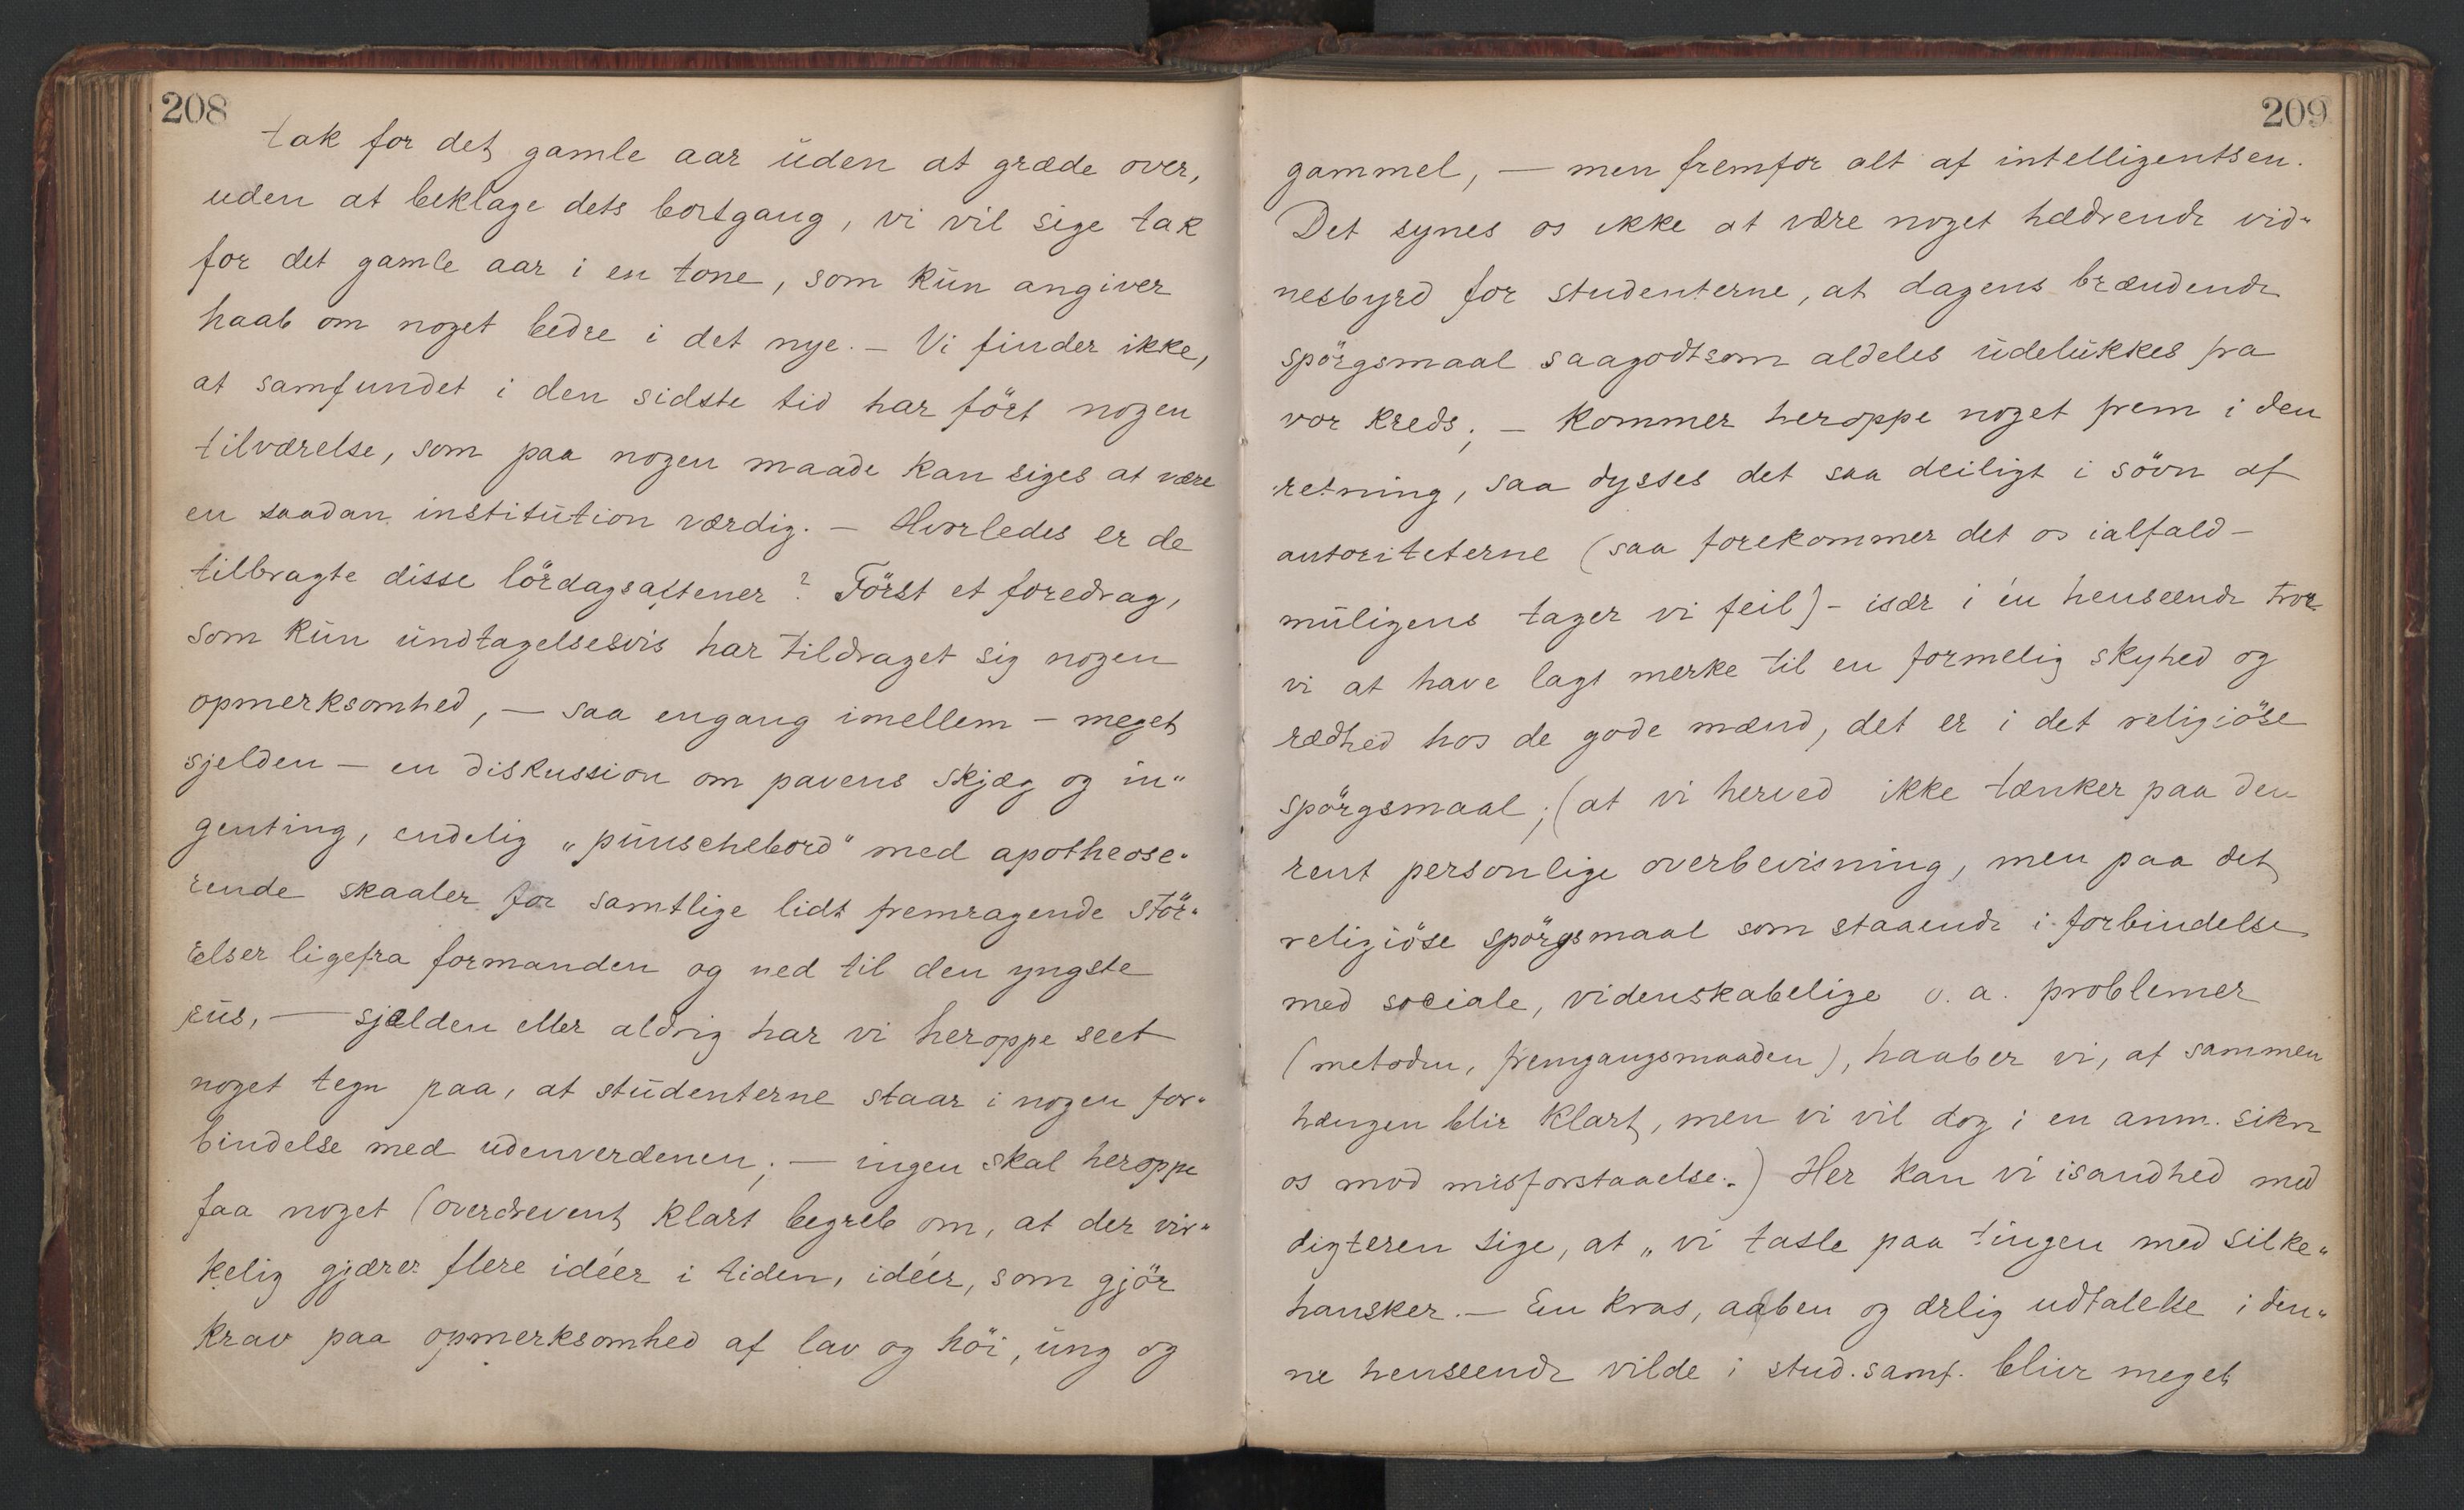 208
tak for det gamle aar uden at græde over,
uden at beklage dets bortgang, vi vil sige tak
for det gamle aar i en tone, som kun angiver
haab om noget bedre i det nye. — Vi finder ikke,
at samfundet i den sidste tid har fört nogen
tilværelse, som paa nogen maade kan siges at være
en saadan institution værdig. — Hvorledes er de
tilbragte disse lördagsaftener? Först et foredrag,
som kun undtagelsesvis har tildraget sig nogen
opmerksomhed, — saa engang imellem — meget
sjelden — en diskussion om pavens skjæg og in„
genting, endelig „punschebord“ med apotheose„
rende skaaler for samtlige lidt fremragende stör„
relser ligefra formanden og ned til den yngste
rus, — sjælden eller aldrig har vi heroppe seet
noget tegn paa, at studenterne staar i nogen for„
bindelse med udenverdenen; — ingen skal heroppe
faa noget (overdrevent klart begreb om, at der vir„
kelig gjærer flere idéer i tiden, idéer, som gjör
krav paa opmerksomhed af lav og höi, ung og
209
gammel, — men fremfor alt af intelligentsen.
Det synes os ikke at være noget hædrende vid„
nesbyrd for studenterne, at dagens brændende
spörgsmaal saagodtsom aldeles udelukkes fra
vor kreds; — kommer heroppe noget frem i den
retning, saa dysses det saa deiligt i sövn af
autoriteterne (saa forekommer det os ialfald —
muligens tager vi feil) — især i én henseende tror
vi at have lagt merke til en formelig skyhed og
rædhed hos de gode mænd, det er i det religiöse
spörgsmaal; (at vi herved ikke tænker paa den
rent personlige overbevisning, men paa det
religiöse spörgsmaal som staaende i forbindelse
med sociale, videnskabelige o. a. problemer
(metoden, fremgangsmaaden), haaber vi, af sammen
hængen blir klart, men vi vil dog i en anm. sikre
os mod misforstaaelse.) Her kan vi isandhed med
digteren sige, at „vi tasle paa tingen med silke„
hansker. — En kras, aaben og ærlig udtalelse i den„
ne henseende vilde i stud. samf. blive meget